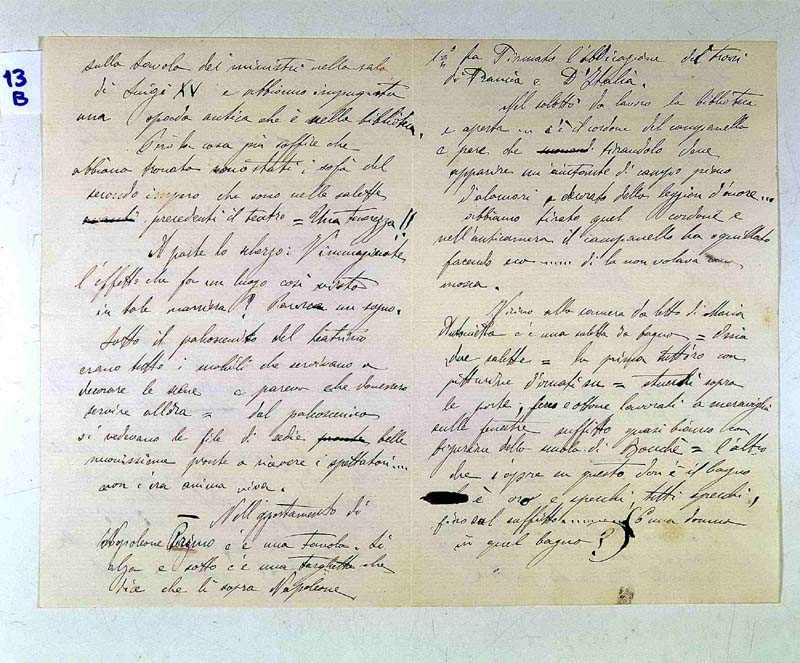 13
B
sulla tavola dei ministri nella sala
di Luigi XV e abbiamo impugnata
una spada antica che è nella biblioteca.
Però la cosa più soffice che
abbiano trovato sono stati i sofà del
secondo impero che sono nelle salette
precedenti il teatro = Una tenerezza!!
A parte lo scherzo: V'immaginate
l'effetto che fa un luogo così visto
in tale maniera? Pareva un sogno.
Sotto il palcoscenico del teatrino
erano tutti i mobili che servivano a
decorare le scene e pareva che dovessero
servire allora = dal palcoscenico
si vedevano le file di sedie belle
nuovissime pronte a ricevere i spettatori....
non c'era anima viva.
Nell'appartamento di
Napoleone Primo c'è una tavola. Si
alza e sotto c'è una targhetta che
dice che lì sopra Napoleone
1º ha Firmato l'abdicazione dei troni
di Francia e D'Italia.
Nel salotto da lavoro la biblioteca
è aperta ... c'è il cordone del campanello
e pare che tirandolo deve
apparire un aiutante di campo pieno
d'alamari e decorato della legion d'onore...
abbiamo tirato quel cordone e
nell'anticamera il campanello ha squillato
facendo eco ..... di là non volava una
mosca.
Vicino alla camera da letto di Maria
Antonietta c'è una saletta da bagno = Ossia
due salette = la prima tutt'oro con
pitturine d'ornati su = stucchi sopra
le porte, ferro e ottone lavorati a meraviglia
sulle finestre soffitto quasi bianco con
figurine della scuola di Bouché = l'altro
che sopra in questo, dov'è il bagno
è oro e specchi, tutti specchi,
fino sul soffitto ....... E una donna
in quel bagno?